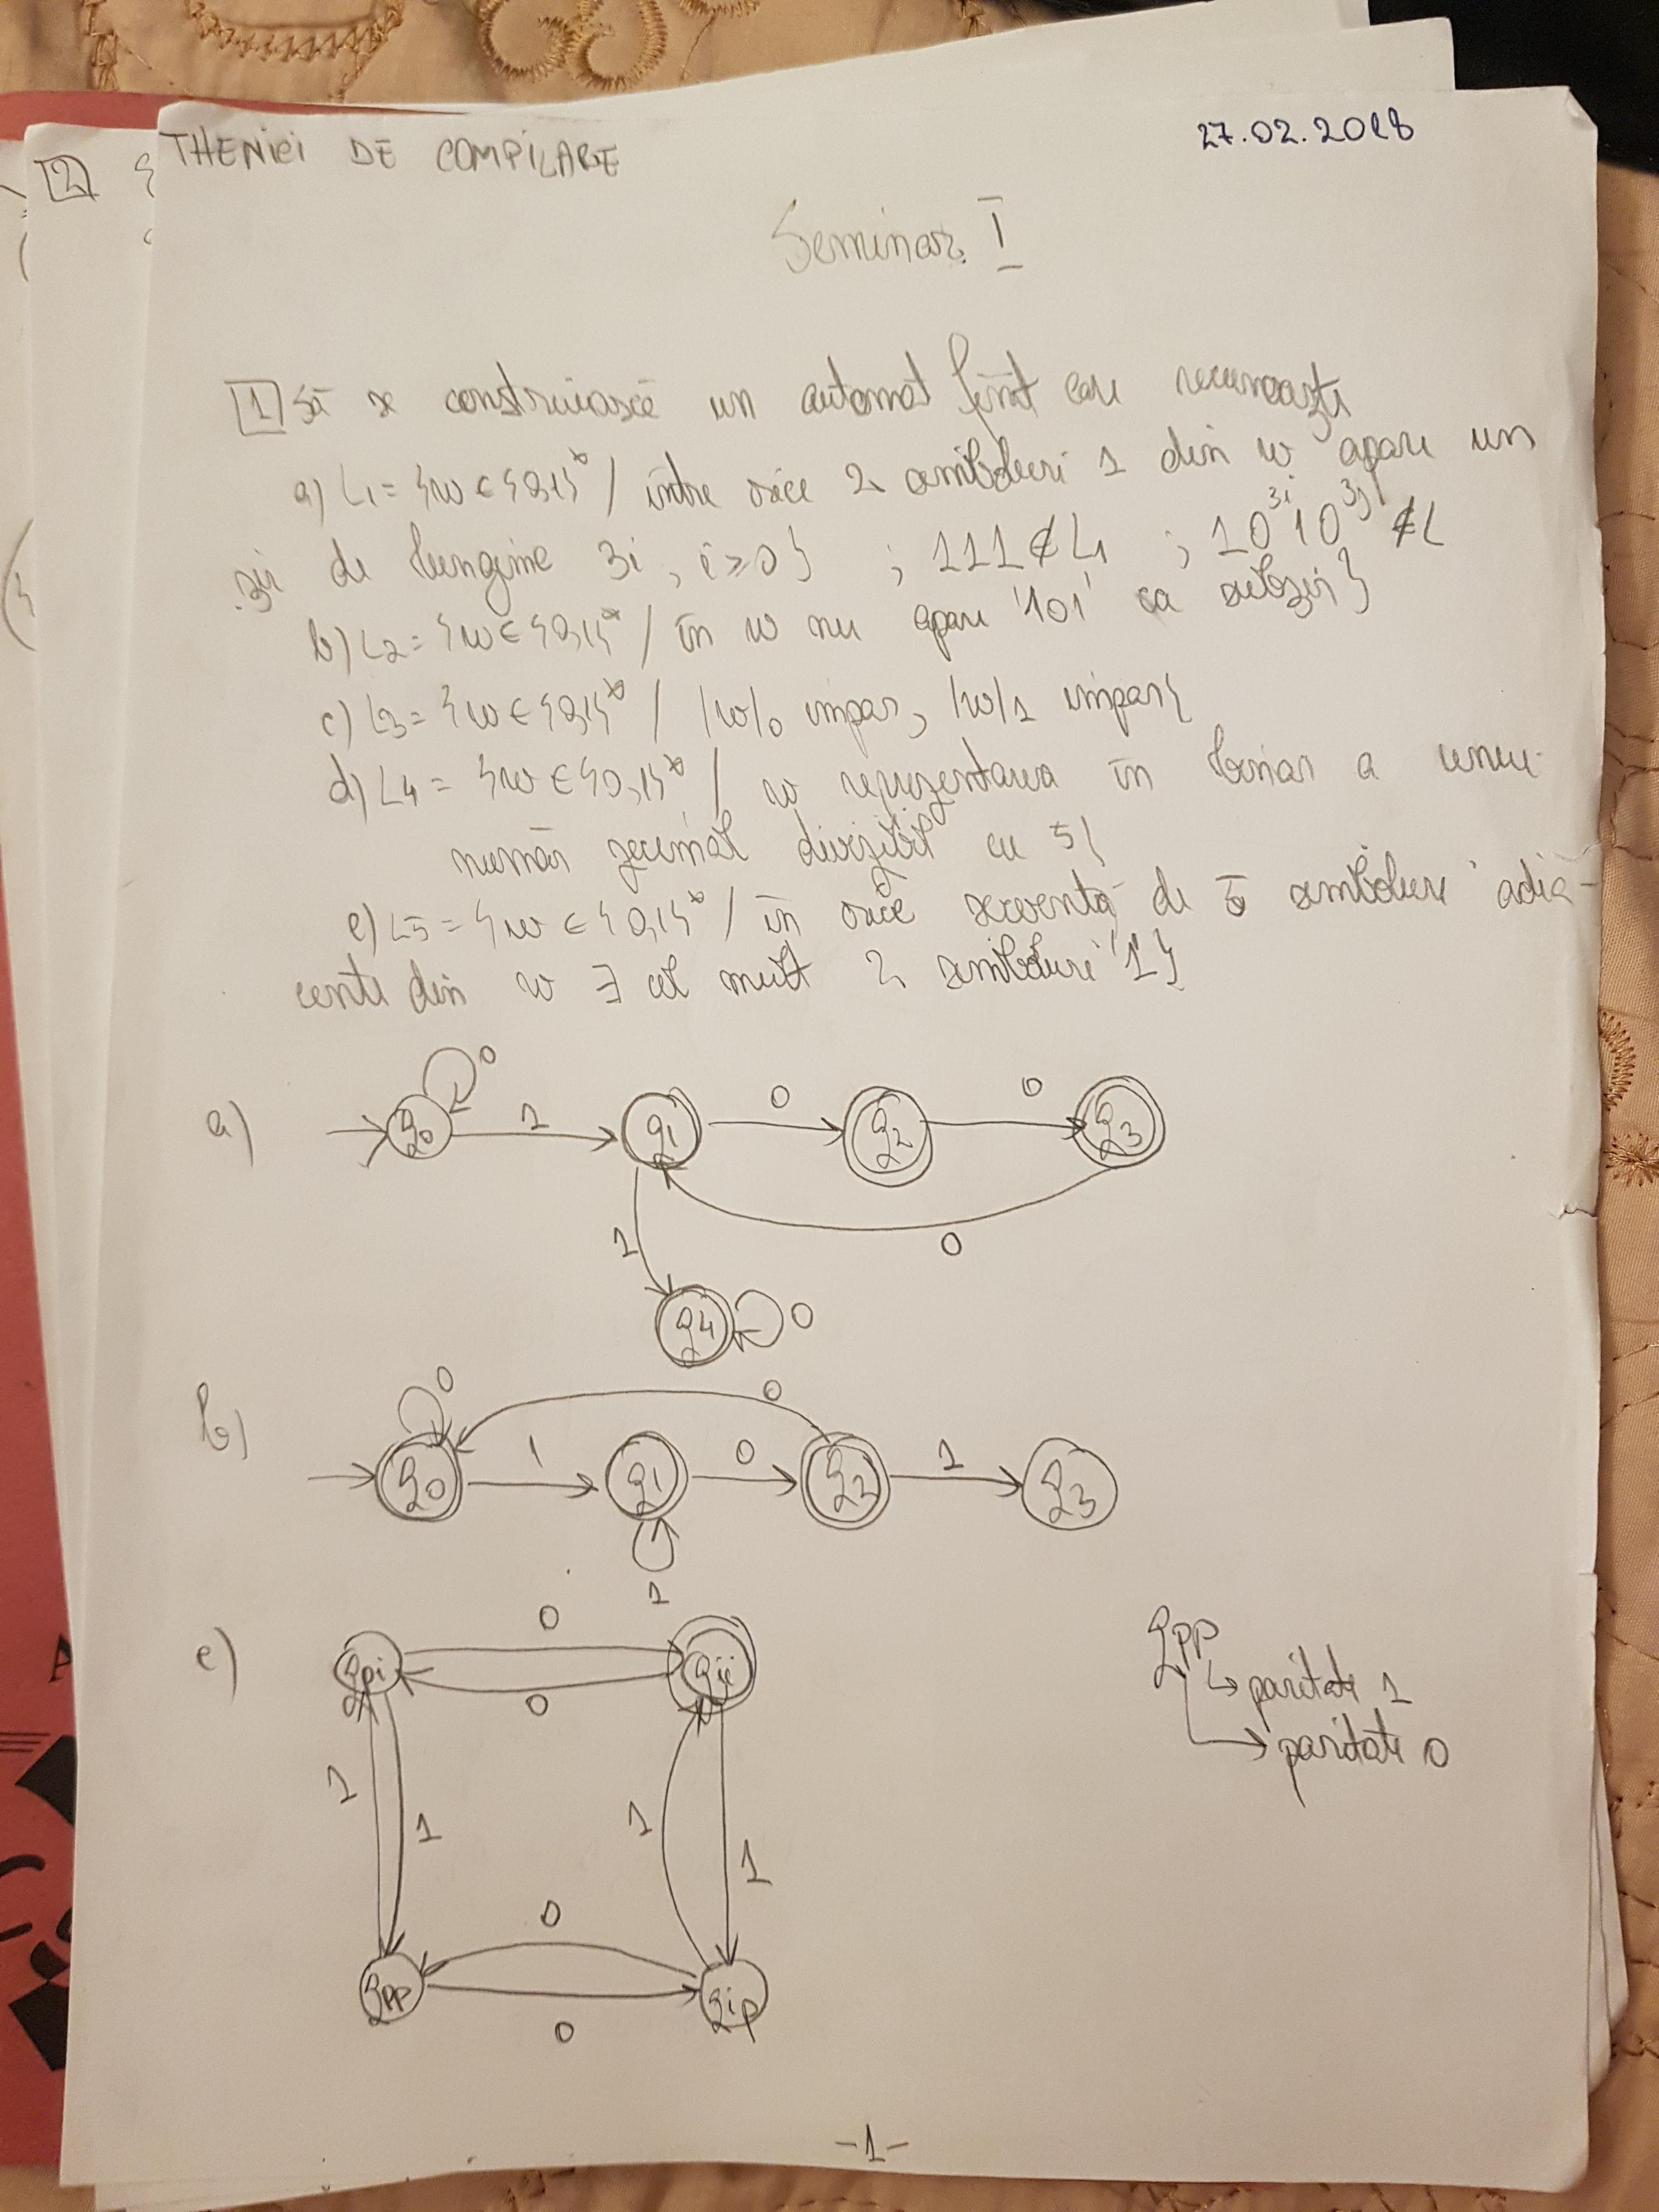 THENICI DE COMPILARE
27.02.2018
Seminar I
1 Să se construiască un automat finit care recunoaște
a) L1 = {w ∈ {0,1}* / între orice 2 simboluri 1 din w apare un
șir de lungime 3i, i≥0} ; 111 ∉ L1 ; 10^3i 10^3j ∉ L
b) L2 = {w ∈ {0,1}* / în w nu apare '101' ca subșir}
c) L3 = {w ∈ {0,1}* / |w|0 impar, |w|1 impar}
d) L4 = {w ∈ {0,1}* / w reprezentarea în binar a unui
număr zecimal divizibil cu 5}
e) L5 = {w ∈ {0,1}* / în orice secvență de 5 simboluri adia-
cente din w ∃ cel mult 2 simboluri '1'}
a) q0 0 1 q1 0 q2 0 q3
1 0
q4 0
b) 0 0
q0 1 q1 0 q2 1 q3
1
c) qpi 0 qii
0
qpp
paritate 1
paritate 0
1 1 1 1
0
qpp qip
0
-1-
2